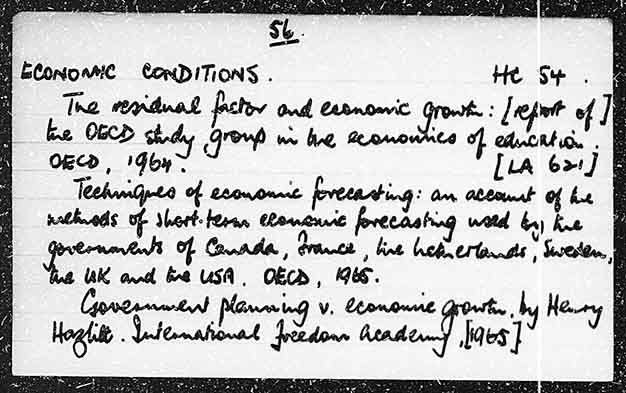 56
ECONOMIC CONDITIONS. HC 54.
The residual factor and economic growth: [report of]
the OECD study group in the economics of education.
OECD, 1964. [LA 621]
Techniques of economic forecasting: an account of the
methods of short-term economic forecasting used by the
governments of Canada, France, the Netherlands, Sweden,
the UK and the USA. OECD, 1965.
Government planning v. economic growth, by Henry
Hazlitt. International Freedom Academy, [1965]